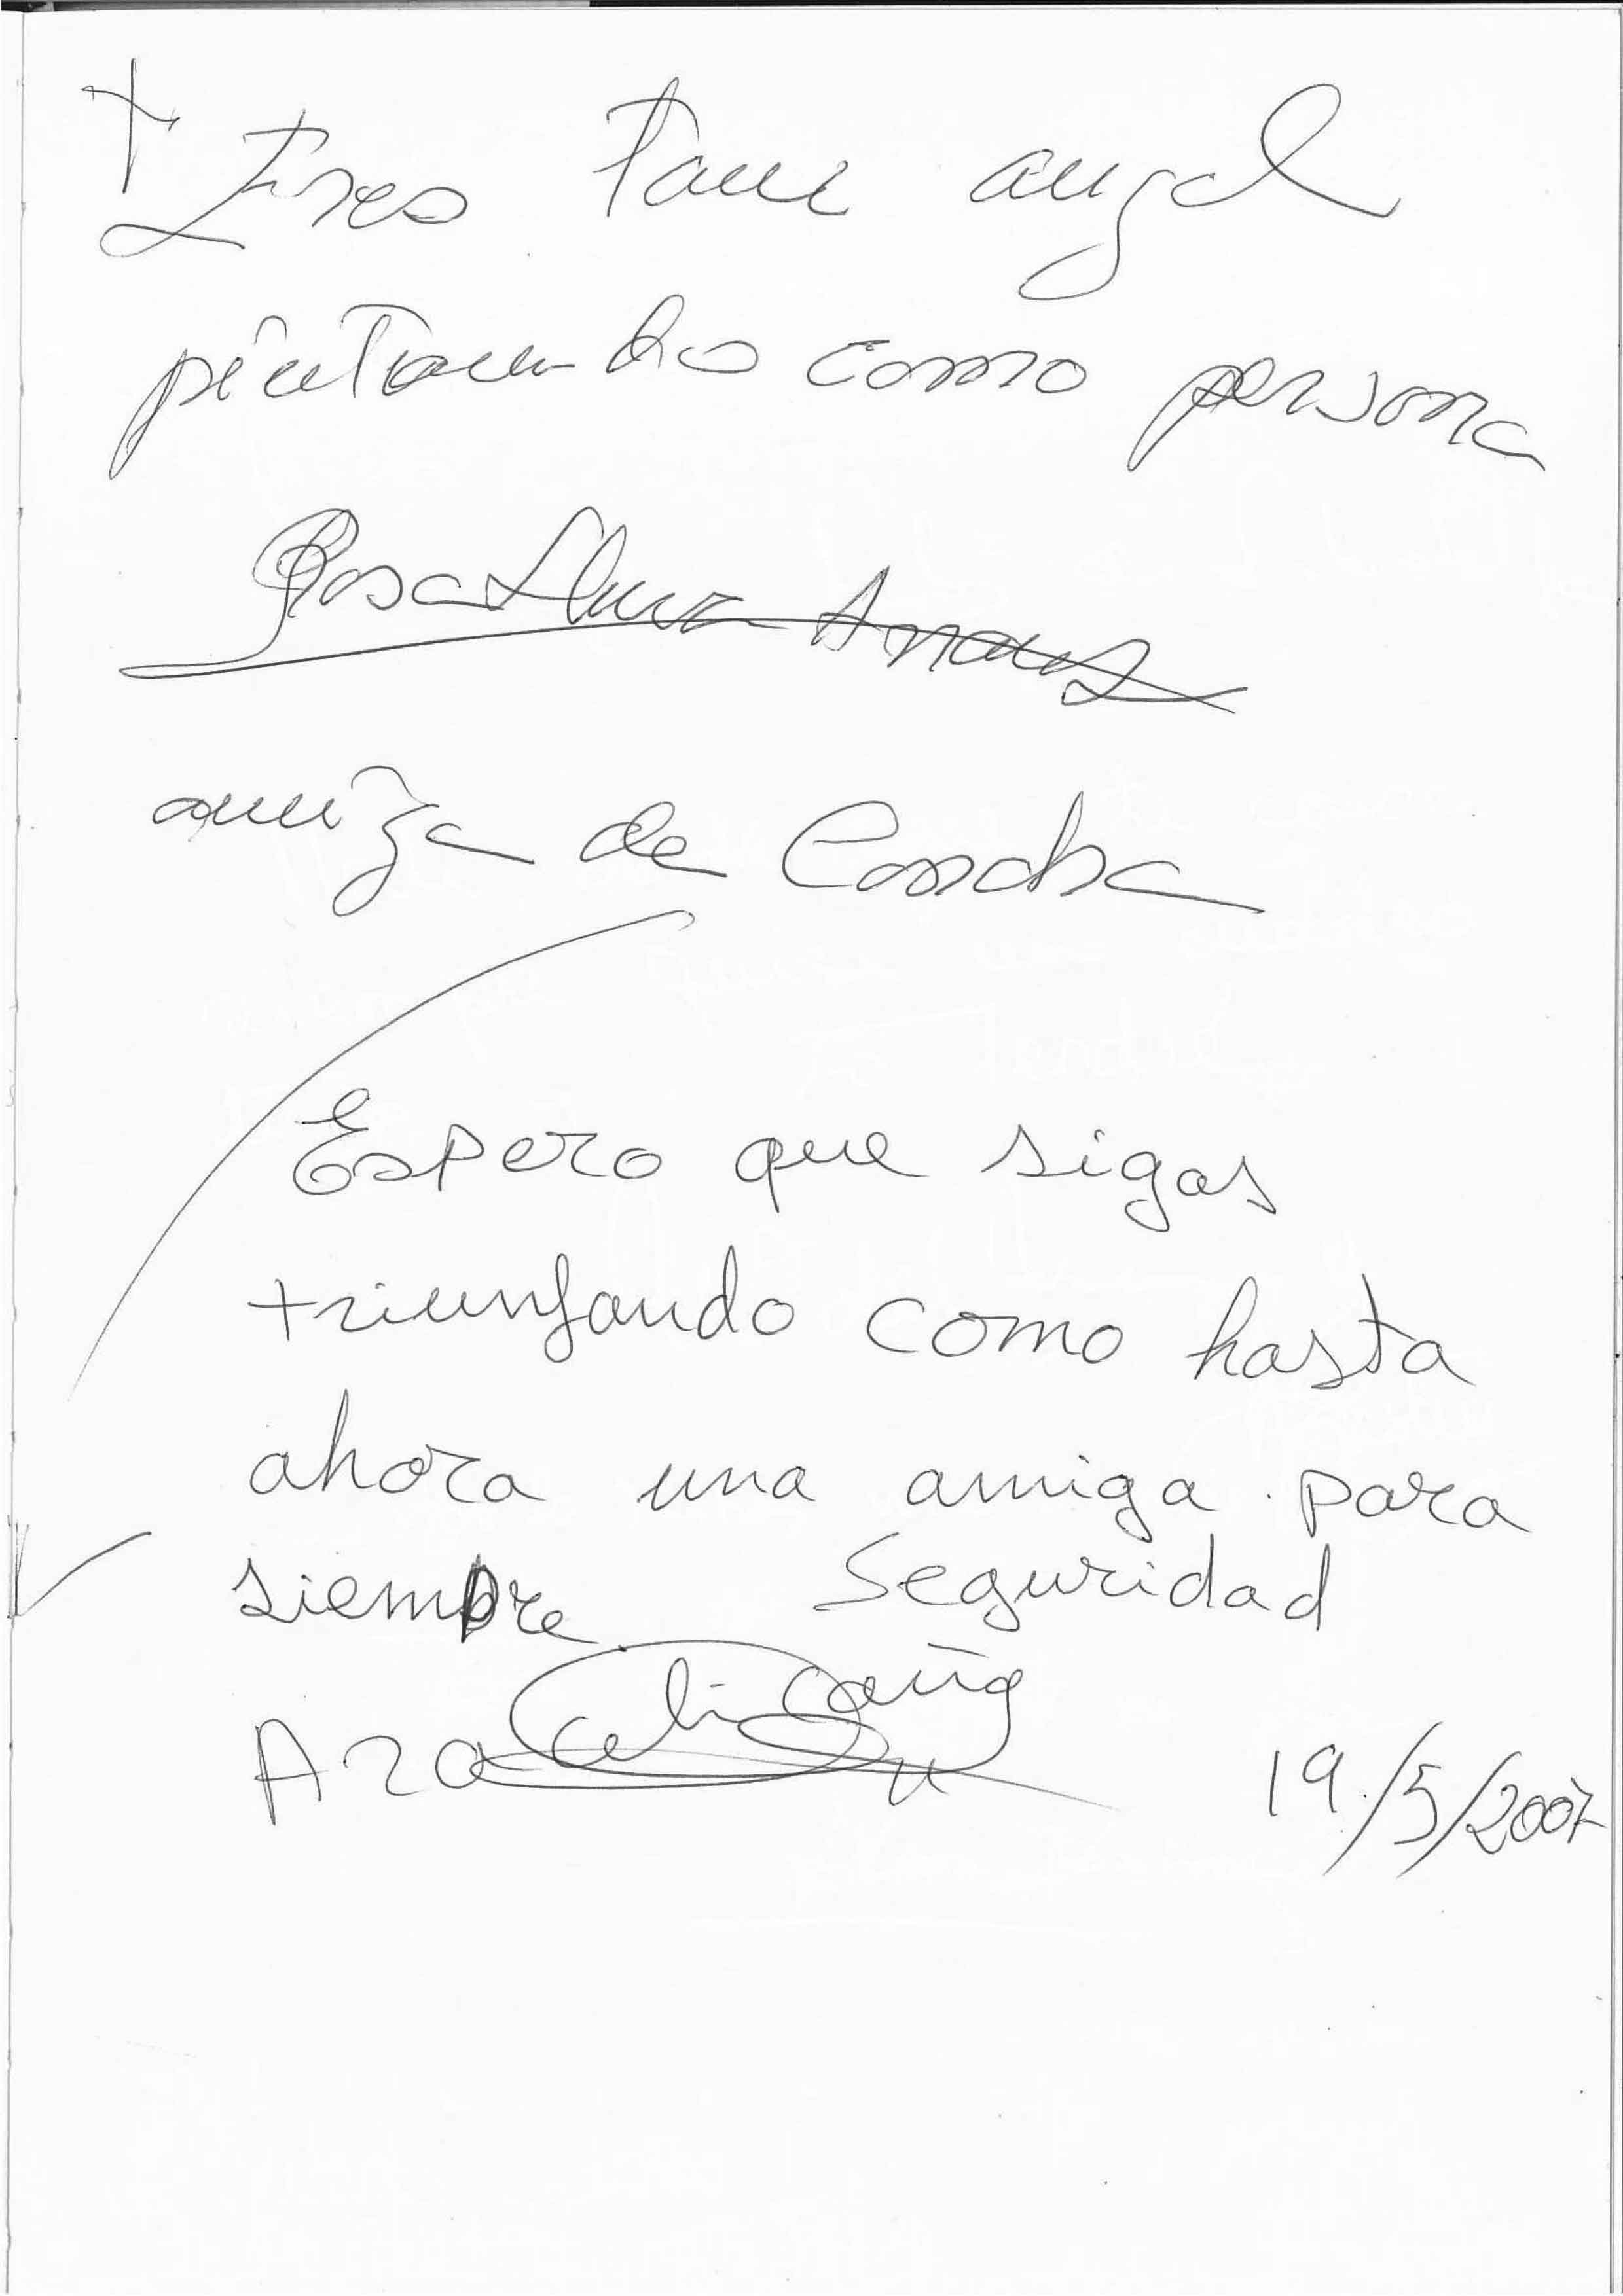 † Eres tan angel
pintando como persona
Rosa
amiga de Concha
Espero que sigas
triunfando como hasta
ahora una amiga para
siempre Seguridad
Araceli
19/5/2007